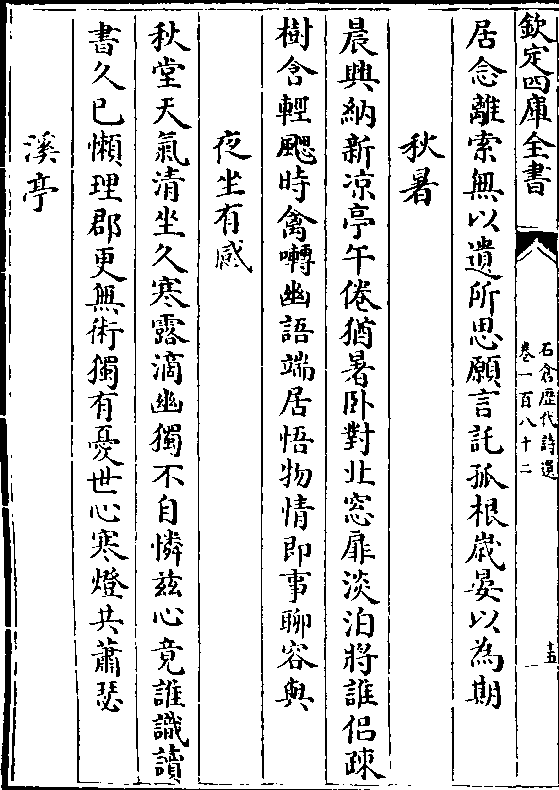 欽定四庫全書
石倉歷代詩選
卷一百八十二
十五
居念離索無以遺所思願言託孤根嵗晏以為期
秋暑
晨興納新凉亭午倦猶暑卧對北窓扉淡泊將誰侣疎
樹含輕颸時禽囀幽語端居悟物情即事聊容與
夜坐有感
秋堂天氣清坐久寒露滴幽獨不自憐兹心竟誰識讀
書久已懶理郡更無術獨有憂世心寒燈共蕭瑟
溪亭